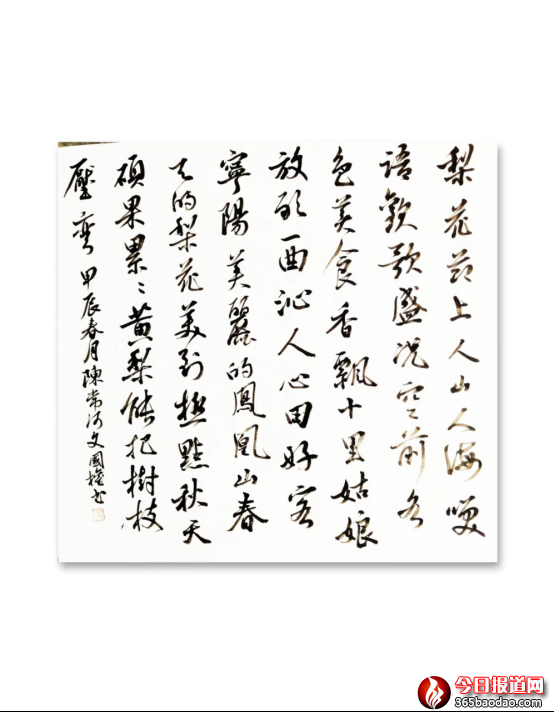 梨花节上人山人海咲
語歡歌盛况空前各
色美食香飄十里姑娘
放歌一曲沁人心田好客
寧陽美麗的鳳凰山春
天的梨花美到極點秋天
碩果累々黃梨能把樹枝
壓彎 甲辰春月陳常河文國權书
今日报道网
365baodao.com